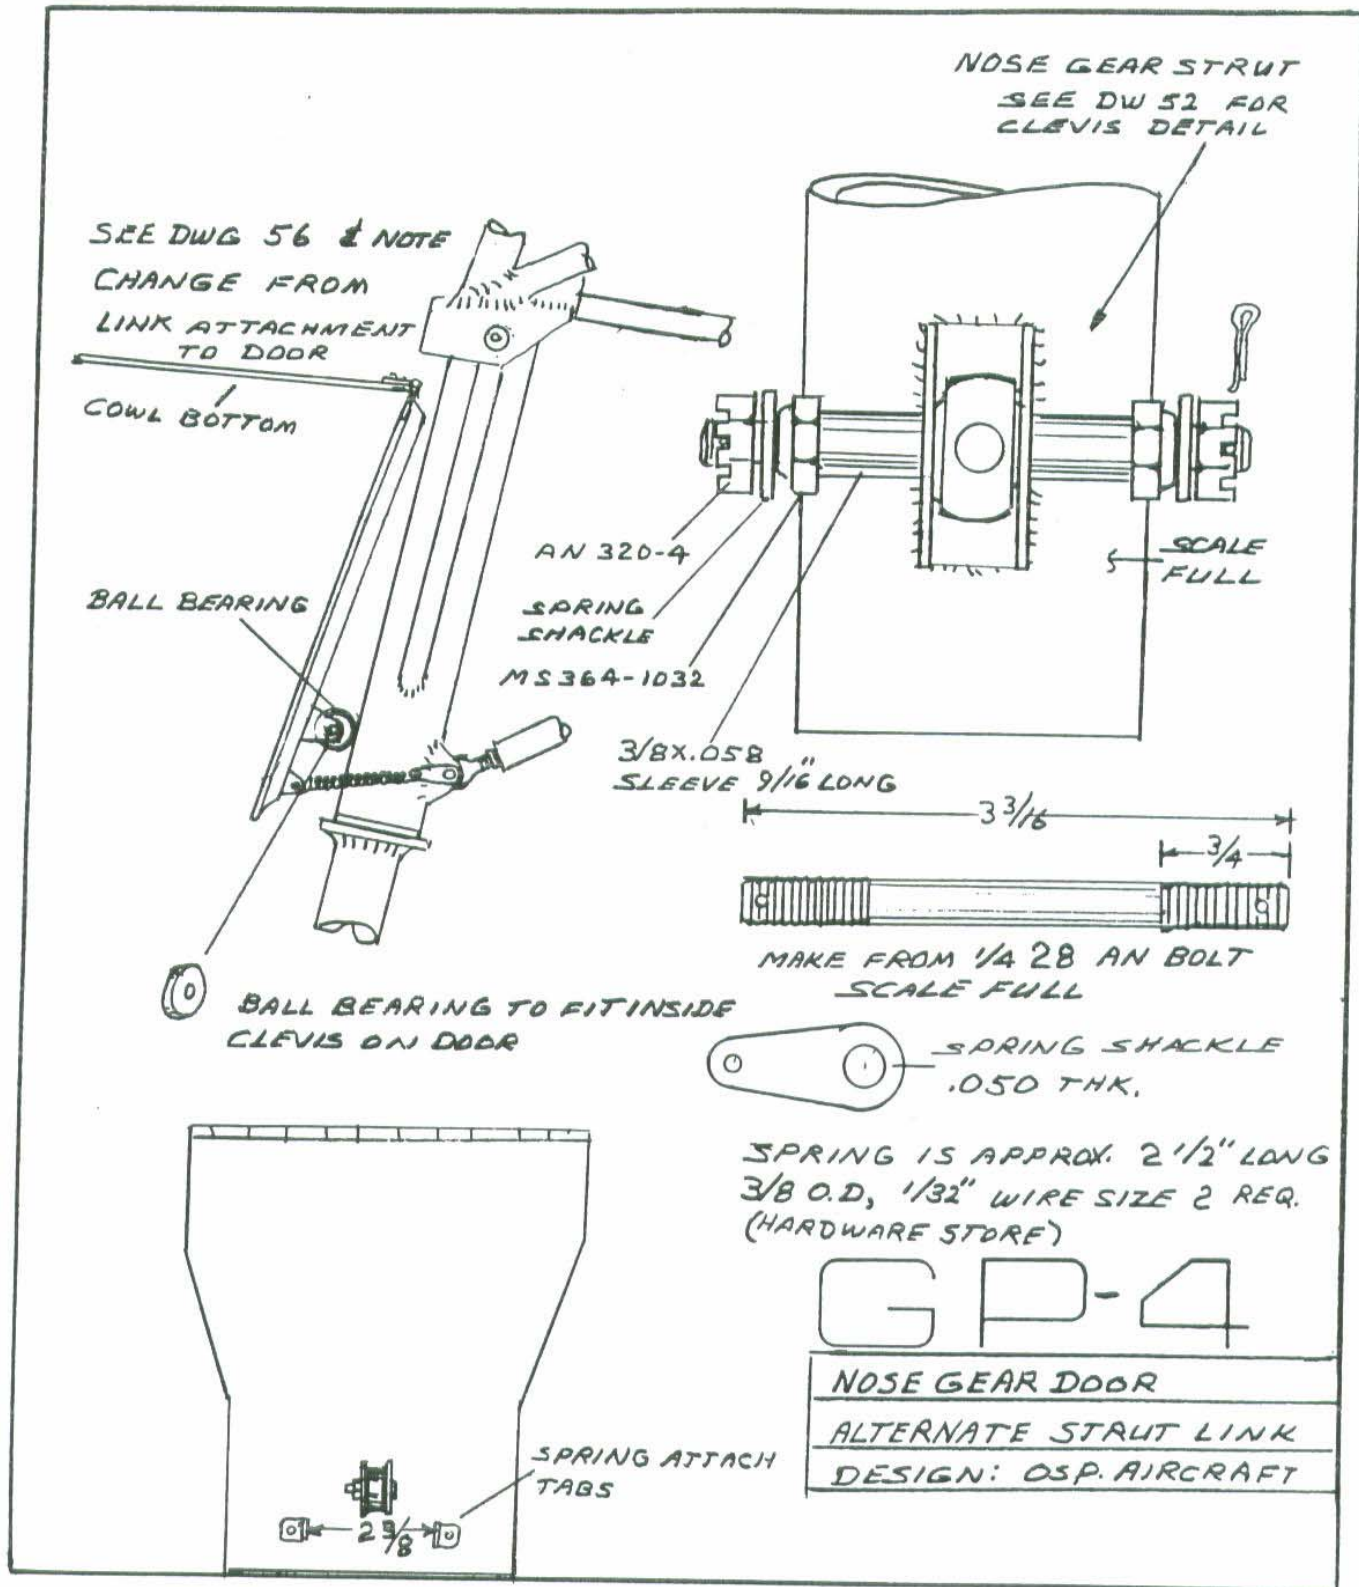 NOSE GEAR STRUT
SEE DW 52 FOR
CLEVIS DETAIL
SEE DWG 56 & NOTE
CHANGE FROM
LINK ATTACHMENT
TO DOOR
COWL BOTTOM
BALL BEARING
AN 320-4
SPRING
SHACKLE
MS364-1032
3/8X.058
SLEEVE 9/16" LONG
SCALE
FULL
3 3/16
3/4
MAKE FROM 1/4 28 AN BOLT
SCALE FULL
BALL BEARING TO FIT INSIDE
CLEVIS ON DOOR
SPRING SHACKLE
.050 THK.
SPRING IS APPROX. 2 1/2" LONG
3/8 O.D, 1/32" WIRE SIZE 2 REQ.
(HARDWARE STORE)
SPRING ATTACH
TABS
GP-4
NOSE GEAR DOOR
ALTERNATE STRUT LINK
DESIGN: OSP. AIRCRAFT